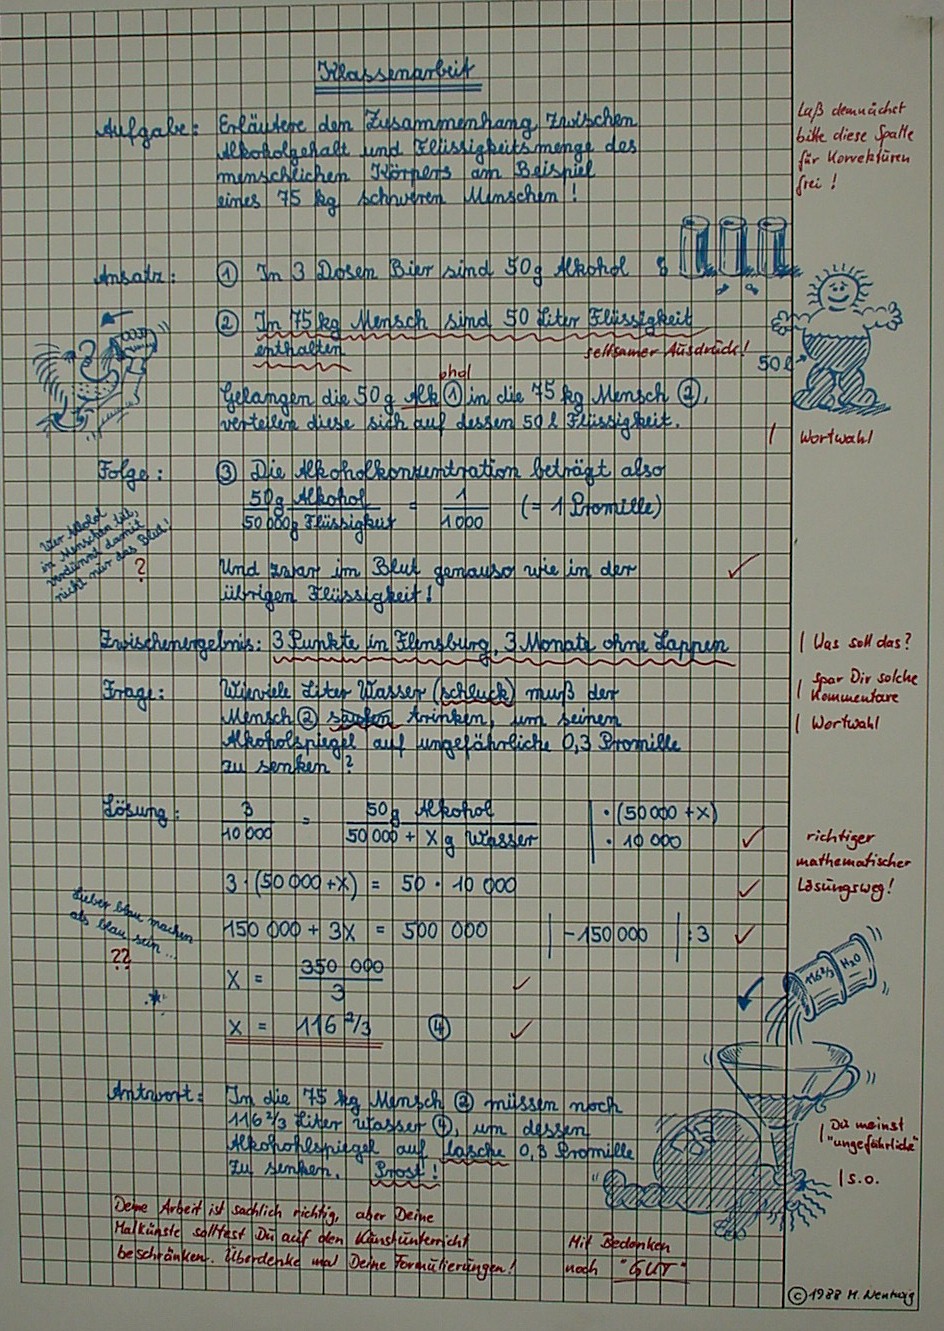 Klassenarbeit
Aufgabe: Erläutere den Zusammenhang zwischen
Alkoholgehalt und Flüssigkeitsmenge des
menschlichen Körpers am Beispiel
eines 75 kg schweren Menschen!
Laß demnächst
bitte diese Spalte
für Korrekturen
frei!
Ansatz: ① In 3 Dosen Bier sind 50g Alkohol
② In 75 kg Mensch sind 50 Liter Flüssigkeit
enthalten
seltsamer Ausdruck!
50 l
ohol
Gelangen die 50 g Alk ① in die 75 kg Mensch ②,
verteilen diese sich auf dessen 50 l Flüssigkeit.
| Wortwahl
Folge: ③ Die Alkoholkonzentration beträgt also
50g Alkohol / 50 000g Flüssigkeit = 1 / 1000 (= 1 Promille)
Wer Alkohol
in Menschen
verdünnt damit
nicht nur das Blut!
?
Und zwar im Blut genauso wie in der
übrigen Flüssigkeit!
Zwischenergebnis: 3 Punkte in Flensburg, 3 Monate ohne Lappen
| Was soll das?
Frage: Wieviele Liter Wasser (schluck) muß der
Mensch ② saufen trinken, um seinen
Alkoholspiegel auf ungefährliche 0,3 Promille
zu senken?
| Spar Dir solche
Kommentare
| Wortwahl
Lösung: 3 / 10 000 = 50g Alkohol / 50 000 + X g Wasser | · (50 000 + X)
· 10 000
richtiger
mathematischer
Lösungsweg!
3 · (50 000 + X) = 50 · 10 000
150 000 + 3X = 500 000 | -150 000 | : 3
Lieber blau machen
als blau sein ...
??
X = 350 000 / 3
X = 116 2/3 ④
116 2/3 H2O
Antwort: In die 75 kg Mensch ② müssen noch
116 2/3 Liter Wasser ④, um dessen
Alkohohlspiegel auf lasche 0,3 Promille
zu senken. Prost!
| Du meinst
"ungefährliche"
| s.o.
Deine Arbeit ist sachlich richtig, aber Deine
Malkünste solltest Du auf den Kunstunterricht
beschränken. Überdenke mal Deine Formulierungen!
Mit Bedenken
noch "GUT"
© 1988 M. Nentwig